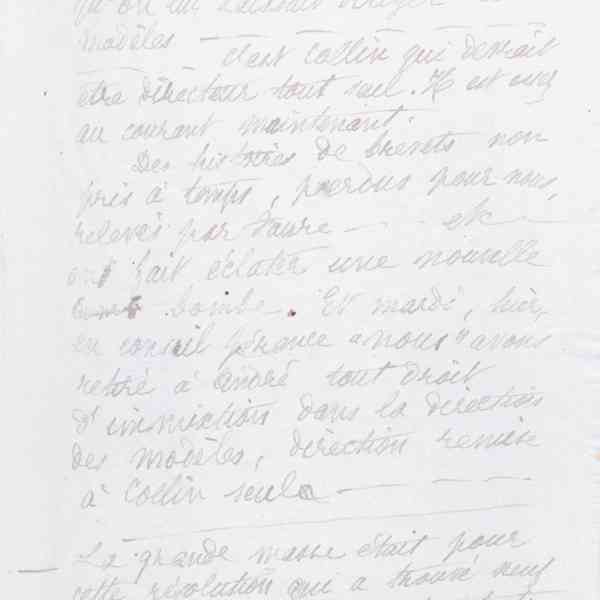 qu'on lui laissait diriger
modèles. — C'est Collin qui devrait
être directeur tout seul. Il est assez
au courant maintenant.
Des histoires de brevets non
pris à temps, perdus pour nous,
relevés par Faure — etc —
ont fait éclater une nouvelle
bombe. Et mardi, hier,
en conseil gérance "nous" avons
retiré à André tout droit
d'immixtion dans la direction
des modèles, direction remise
à Collin seul —
La grande masse était pour
cette révolution qui a trouvé neuf